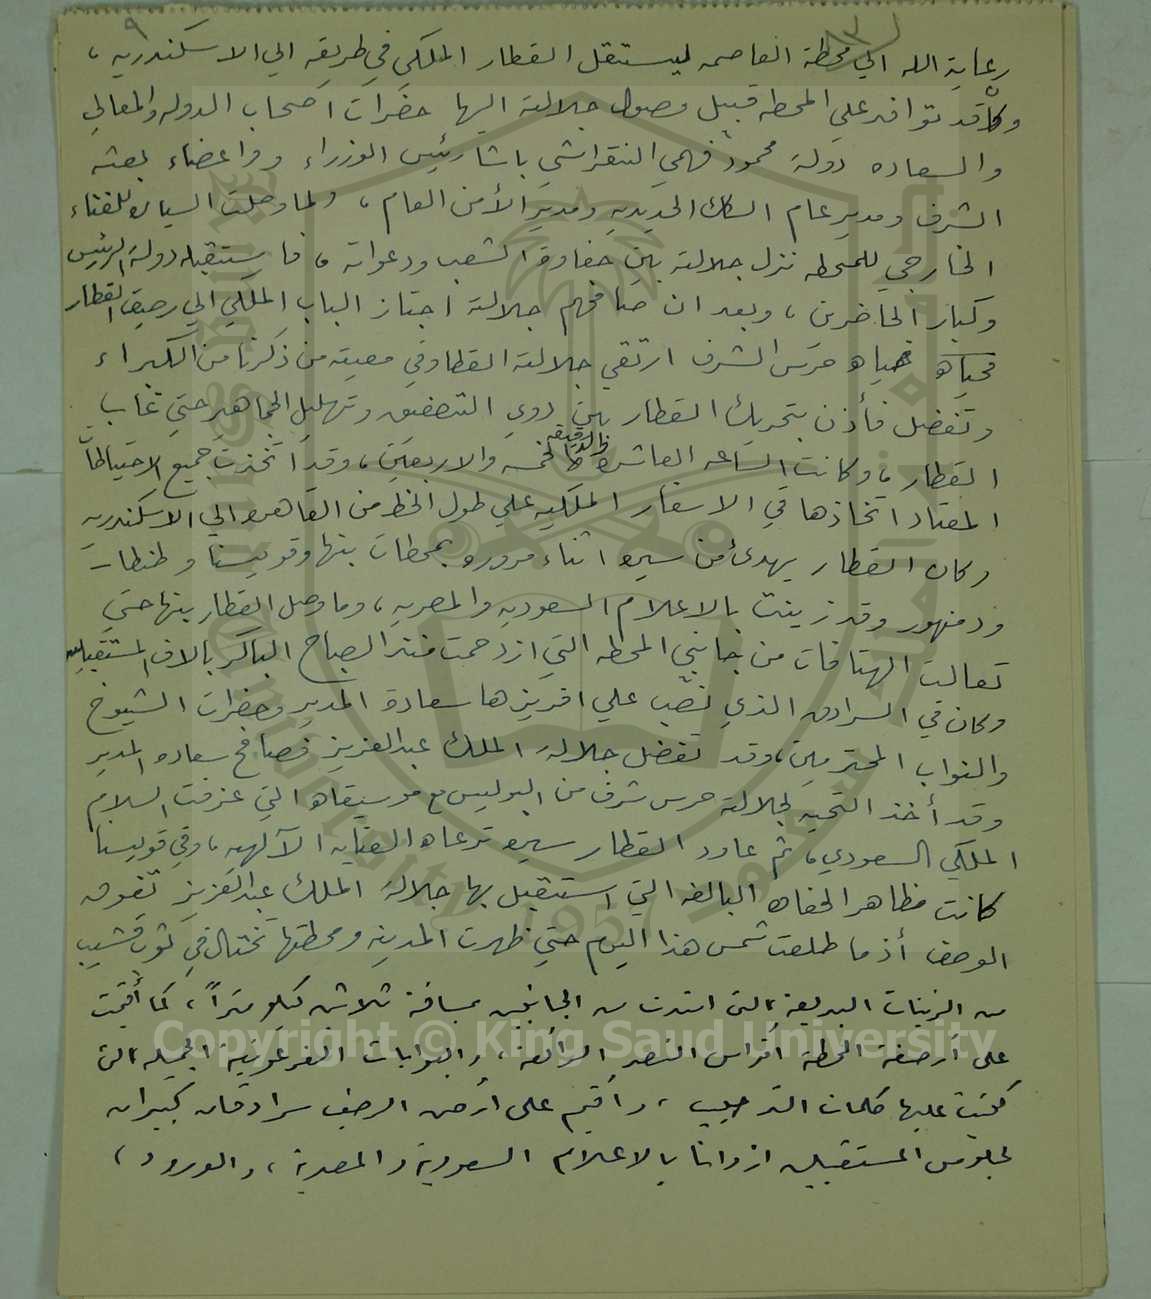 ٩
رعاية الله الي محطة العاصمه ليستقل القطار الملكي في طريقه الي الاسكندريه ،
وكا قد توافد علي المحطه قبيل وصول جلالته اليها حضرات أصحاب الدوله والمعالي
والسعاده دولة محمود فهمي النقراشي باشا رئيس الوزراء وواعضاء بعثه
الشرف ومدير عام السكك الحديديه ومدير الأمن العام ، ولما وصلت السياره للفناء
الخارجي للمحطه نزل جلالته بين حفاوة الشعب ودعواته ، فاستقبله دولة الرئيس
وكبار الحاضرين ، وبعد ان صافحهم جلالته اجتاز الباب الملكي الي رصيف القطار
فحياه حرس الشرف ارتقي جلالته القطار وفي معيته من ذكرنا من الكبراء
وتفضل فأذن بتحريك القطار بين دوي التصفيق وتهليل الجماهير حتي غاب
القطار ، وكانت الساعه العاشره والدقيقه الخمسه والاربعين ، وقد اتخذت جميع الاحتياطات
المعتاد اتخاذها في الاسفار الملكيه علي طول الخط من القاهره الي الاسكندريه
وكان القطار يهدئ من سيره اثناء مروره بمحطات بنها وقويسنا وطنطا
ودمنهور وقد زينت بالاعلام السعوديه والمصريه ، وما وصل القطار بنها حتي
تعالت الهتافات من جانبي المحطه التي ازدحمت منذ الصباح الباكر بالاف المستقبلين
وكان في السرادق الذي نصب علي افريزها سعادة المدير وحضرات الشيوخ
والنواب المحترمين ، وقد تفضل جلالة الملك عبدالعزيز فصافح سعاده المدير
وقد أخذ التحيه لجلالته حرس شرف من البوليس مع موسيقاه التي عزفت السلام
الملكي السعودي ، ثم عاود القطار سيره ترعاه العنايه الآلهيه ، وفي قويسنا
كانت مظاهر الحفاه البالغه التي استقبل بها جلالة الملك عبدالعزيز تفوق
الوصف أذ ما طلعت شمس هذا اليوم حتي ظهرت المدينه ومحطتها تختال في ثوب قشيب
من الزينات البديعة التى امتدت من الجانبين بمسافة ثلاثين كيلو متراً ، كما أقيمت
على أرصفة المحطة أقواس النصر الرائعة ، والبوابات الفرعونية الجميلة التى
كتبت عليها كلمات الترحيب ، وأقيم على أرض الرصيف سرادقان كبيران
لجلوس المستقبلين ازدانا بالاعلام السعودية والمصرية ، والورود ،
Copyright © King Saud University
King Saud University
جامعة الملك سعود
1957